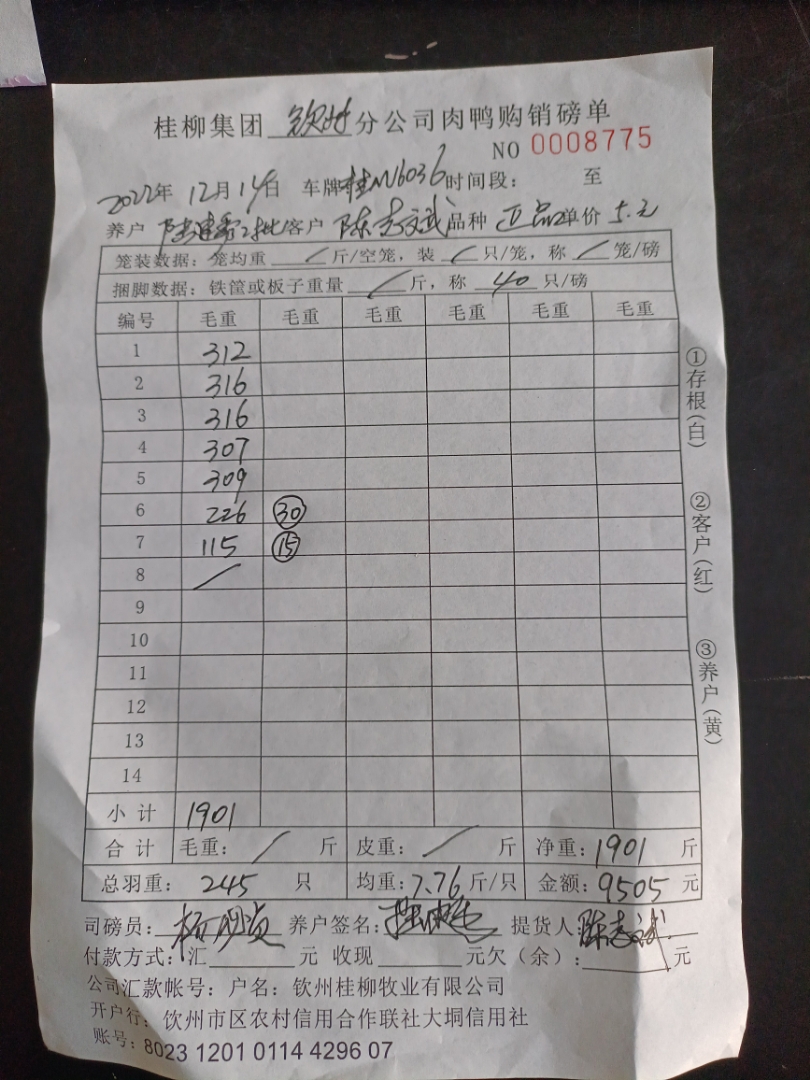 桂柳集团 钦州 分公司肉鸭购销磅单
NO 0008775
2022年 12月 14日 车牌 桂N U6036 时间段： 至
养户 2批 客户 陈志斌 品种 正品 单价 5.元
笼装数据：笼均重 / 斤/空笼，装 / 只/笼，称 / 笼/磅
捆脚数据：铁筐或板子重量 / 斤，称 40 只/磅
编号 毛重 毛重 毛重 毛重 毛重 毛重
1 312
2 316
3 316
4 307
5 309
6 226 30
7 115 15
8 /
9
10
11
12
13
14
小计 1901
合计 毛重： / 斤 皮重： / 斤 净重：1901 斤
总羽重： 245 只 均重：7.76 斤/只 金额：9505 元
司磅员： 养户签名： 提货人：陈志斌
付款方式：汇 元 收现 元欠（余）： 元
公司汇款帐号：户名：钦州桂柳牧业有限公司
开户行：钦州市区农村信用合作联社大垌信用社
账号：8023 1201 0114 4296 07
①存根(白)
②客户(红)
③养户(黄)